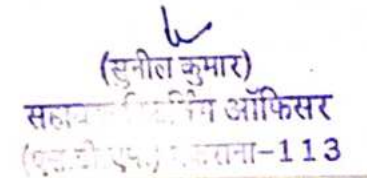 (सुनील कुमार)
सहायक रिटर्निंग ऑफिसर
(एस.डी.एम.) -113